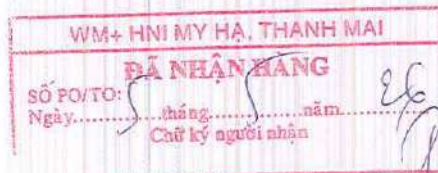 WM+ HNI MY HẠ, THANH MAI
ĐÃ NHẬN HÀNG
SỐ PO/TO:
Ngày 5 tháng 5 năm 26
Chữ ký người nhận